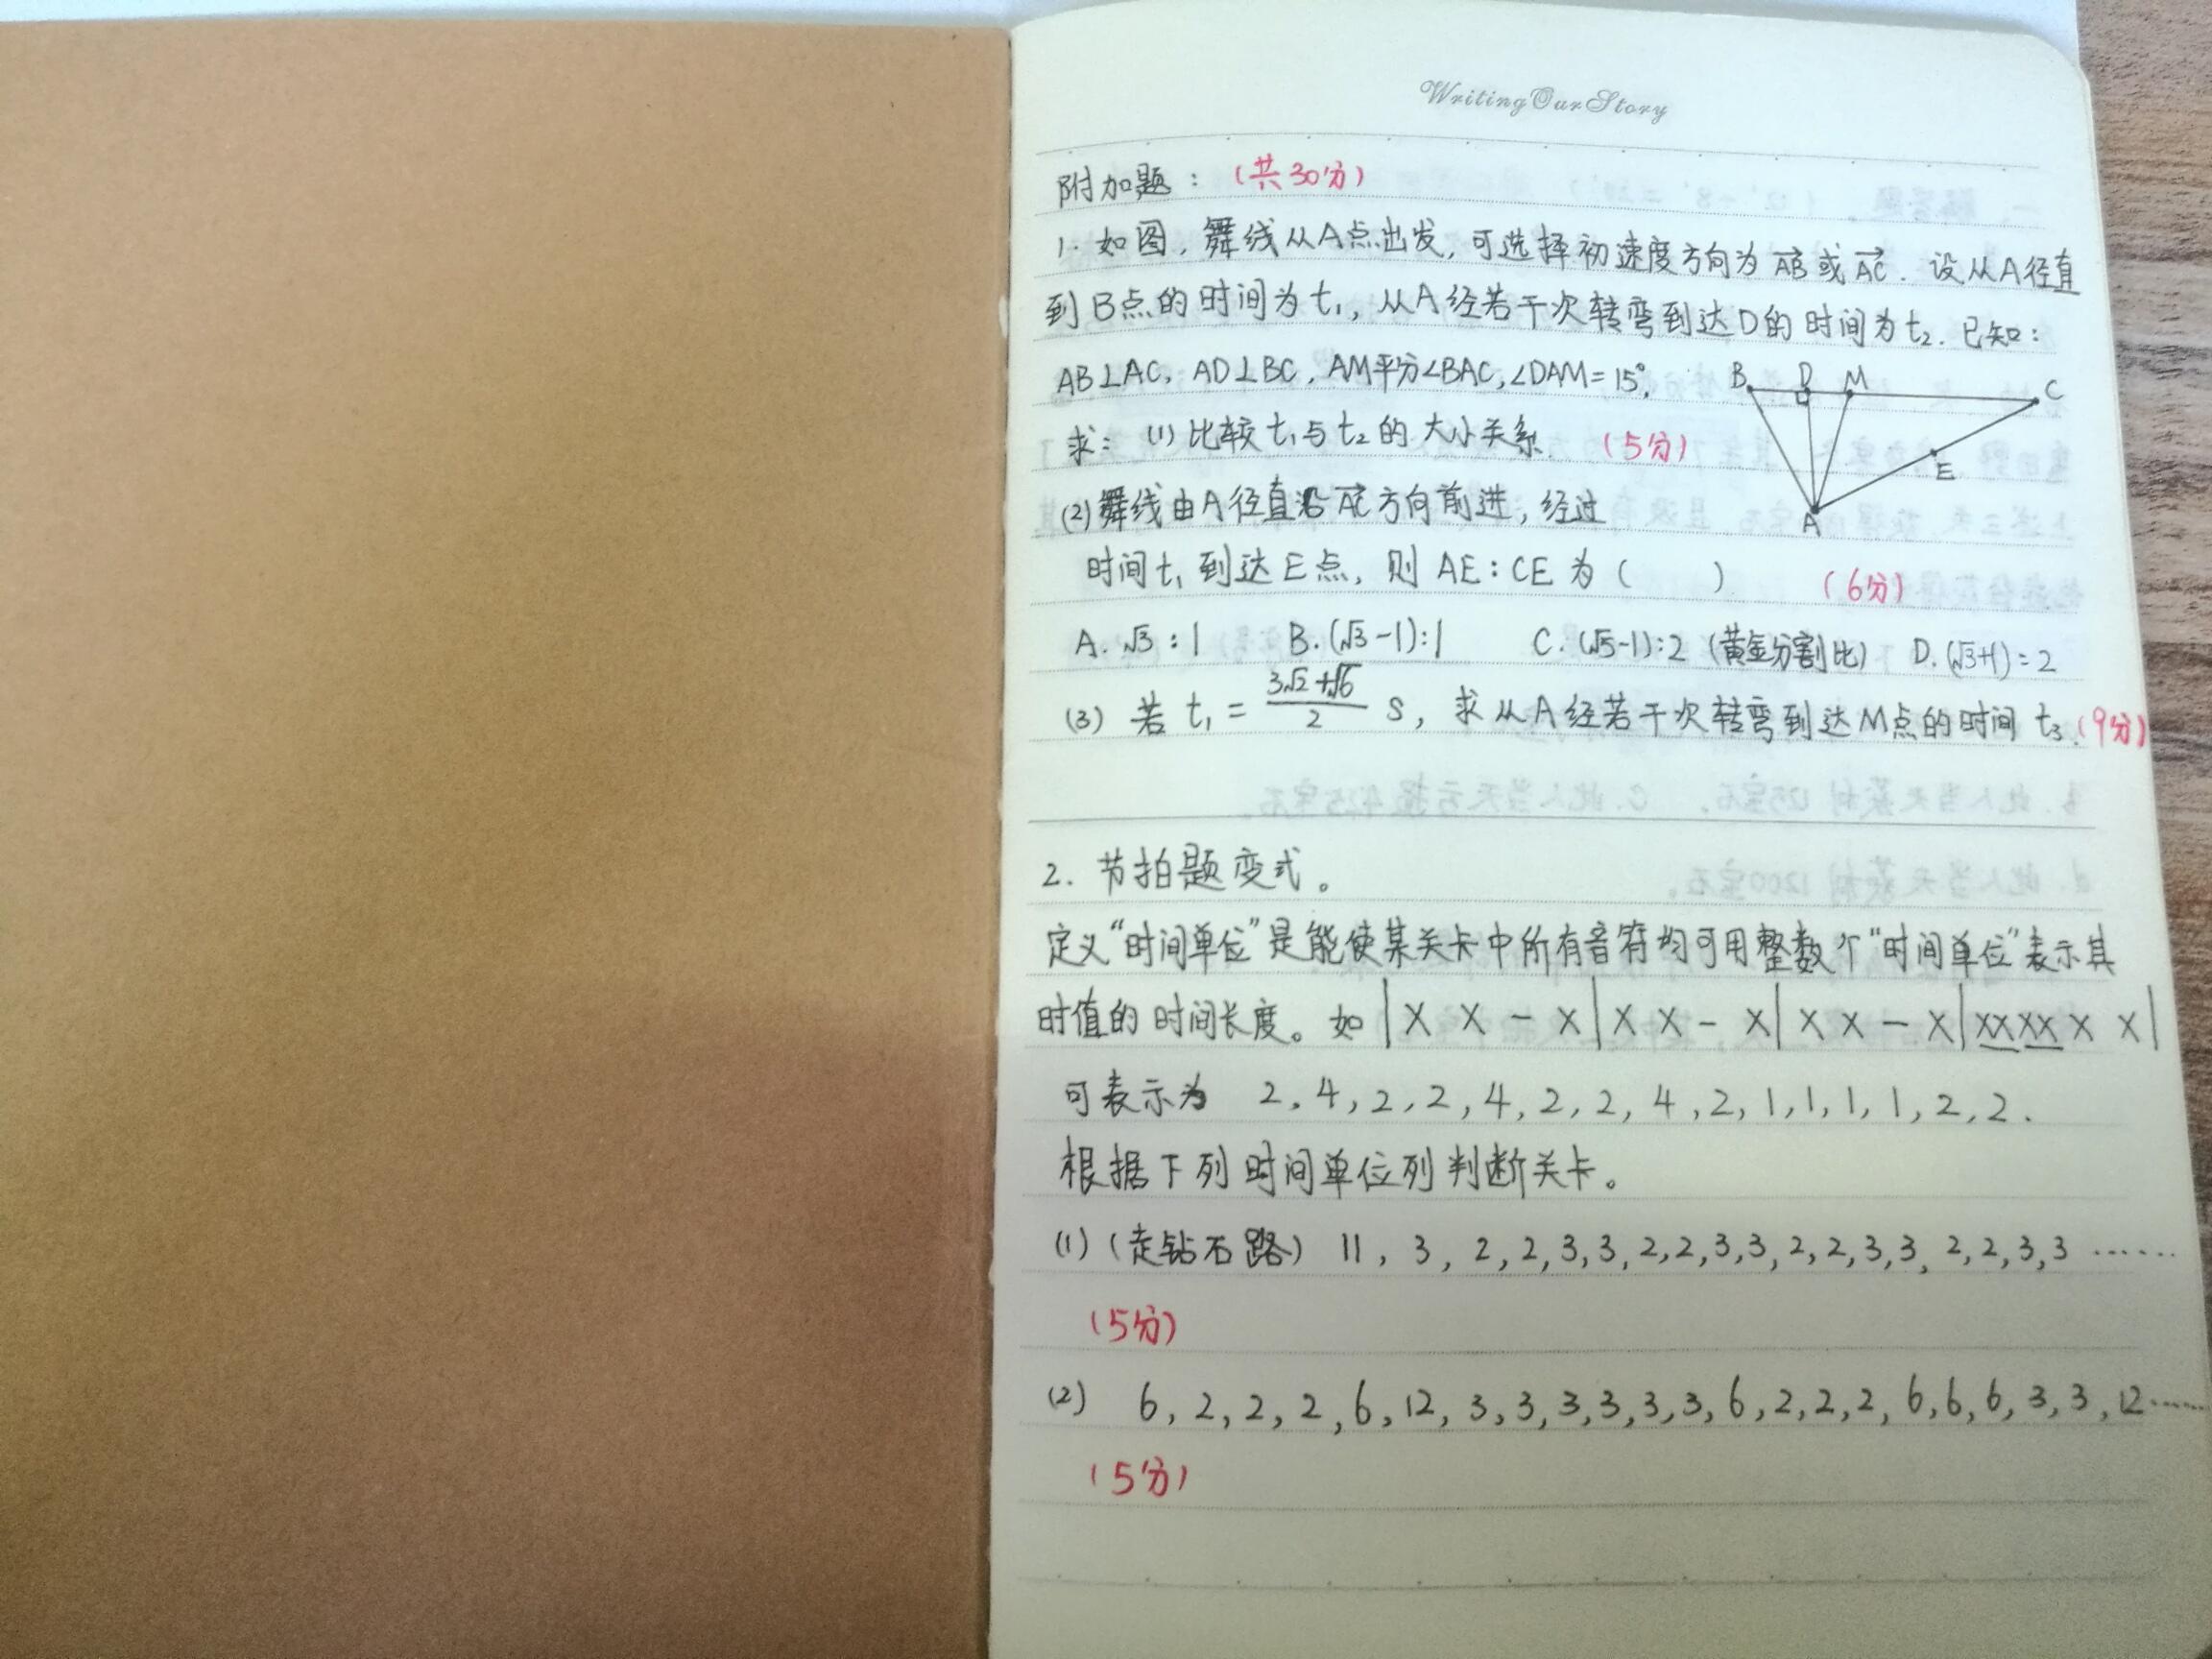 WritingOurStory
附加题：（共30分）
1. 如图，舞线从A点出发，可选择初速度方向为 AB 或 AC. 设从A径直
到B点的时间为t₁，从A经若干次转弯到达D的时间为t₂. 已知：
AB⊥AC, AD⊥BC, AM平分∠BAC, ∠DAM=15°.
B D M C
求：(1) 比较t₁与t₂的大小关系. （5分）
E
(2) 舞线由A径直沿AC方向前进，经过
A
时间t₁到达E点，则AE:CE为（ ） （6分）
A. √3:1 B. (√3-1):1 C. (√5-1):2 (黄金分割比) D. (√3+1)=2
(3) 若 t₁ = (3√2+√6)/2 s，求从A经若干次转弯到达M点的时间t₃.（9分）
2. 节拍题变式。
定义“时间单位”是能使某关卡中所有音符均可用整数个“时间单位”表示其
时值的时间长度。如|X X - X|X X - X|X X - X|XX XX X X|
可表示为 2, 4, 2, 2, 4, 2, 2, 4, 2, 1, 1, 1, 1, 2, 2.
根据下列时间单位列判断关卡。
(1) (走钻石路) 11, 3, 2, 2, 3, 3, 2, 2, 3, 3, 2, 2, 3, 3, 2, 2, 3, 3 ……
（5分）
(2) 6, 2, 2, 2, 6, 12, 3, 3, 3, 3, 3, 3, 6, 2, 2, 2, 6, 6, 6, 3, 3, 12……
（5分）